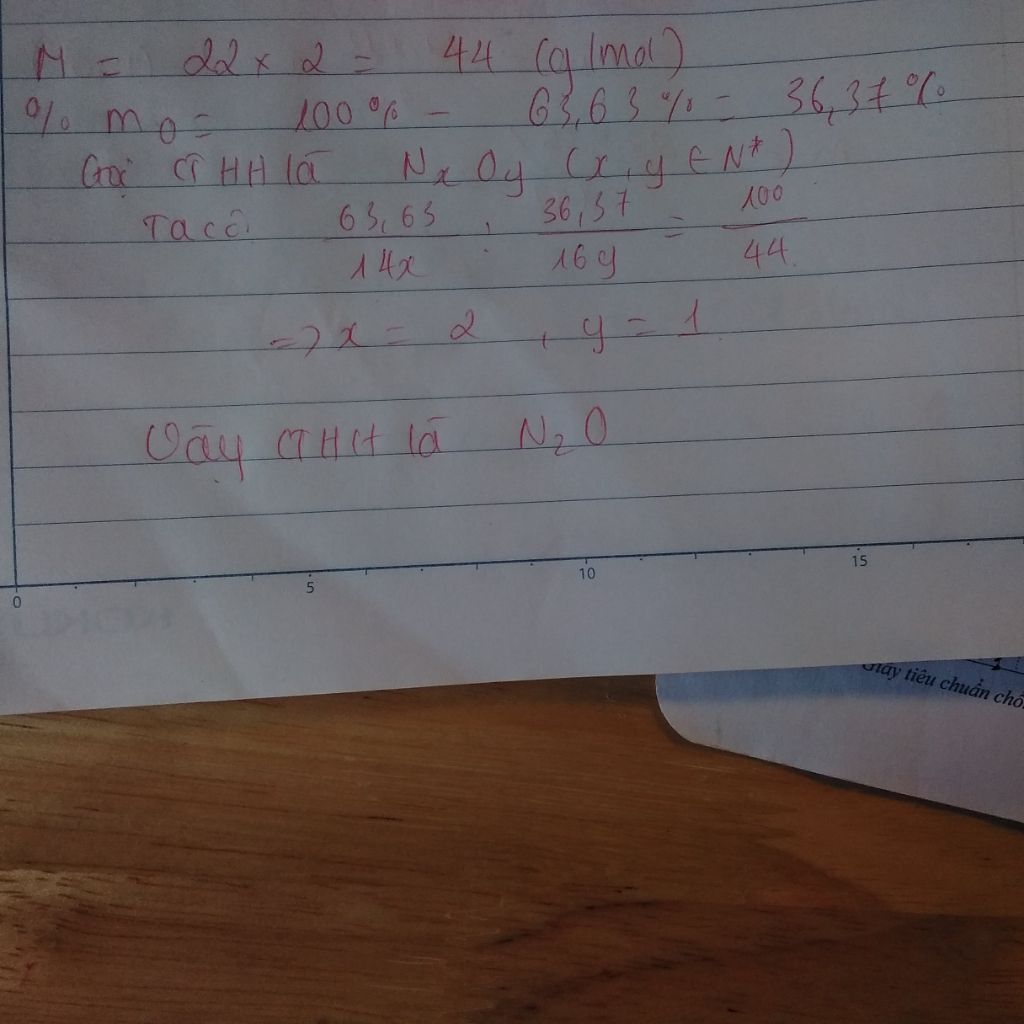 M = 22 × 2 = 44 (g/mol)
% mO = 100% - 63,63% = 36,37%
Gọi CTHH là NxOy (x, y ∈ N*)
Ta có: 63,63/14x : 36,37/16y = 100/44
=> x = 2 , y = 1
Vậy CTHH là N2O
0 5 10 15
Giấy tiêu chuẩn